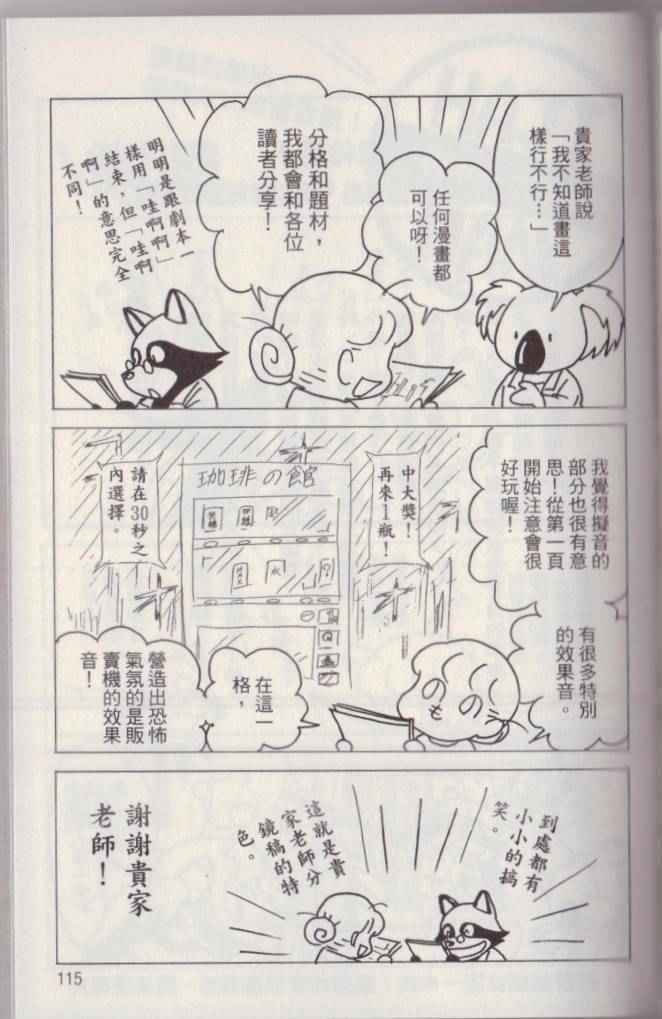 貴家老師說
「我不知道畫這
樣行不行…」
任何漫畫都
可以呀！
分格和題材，
我都會和各位
讀者分享！
明明是跟劇本一
樣用「哇啊啊」
結束，但「哇啊
啊」的意思完全
不同！
我覺得擬音的
部分也很有意
思！從第一頁
開始注意會很
好玩喔！
有很多特別
的效果音。
中大獎！
再來1瓶！
珈琲の館
請在30秒之
內選擇。
在這一
格，
營造出恐怖
氣氛的是販
賣機的效果
音！
到處都有
小小的搞
笑。
這就是貴
家老師分
鏡稿的特
色。
謝謝貴家
老師！
115